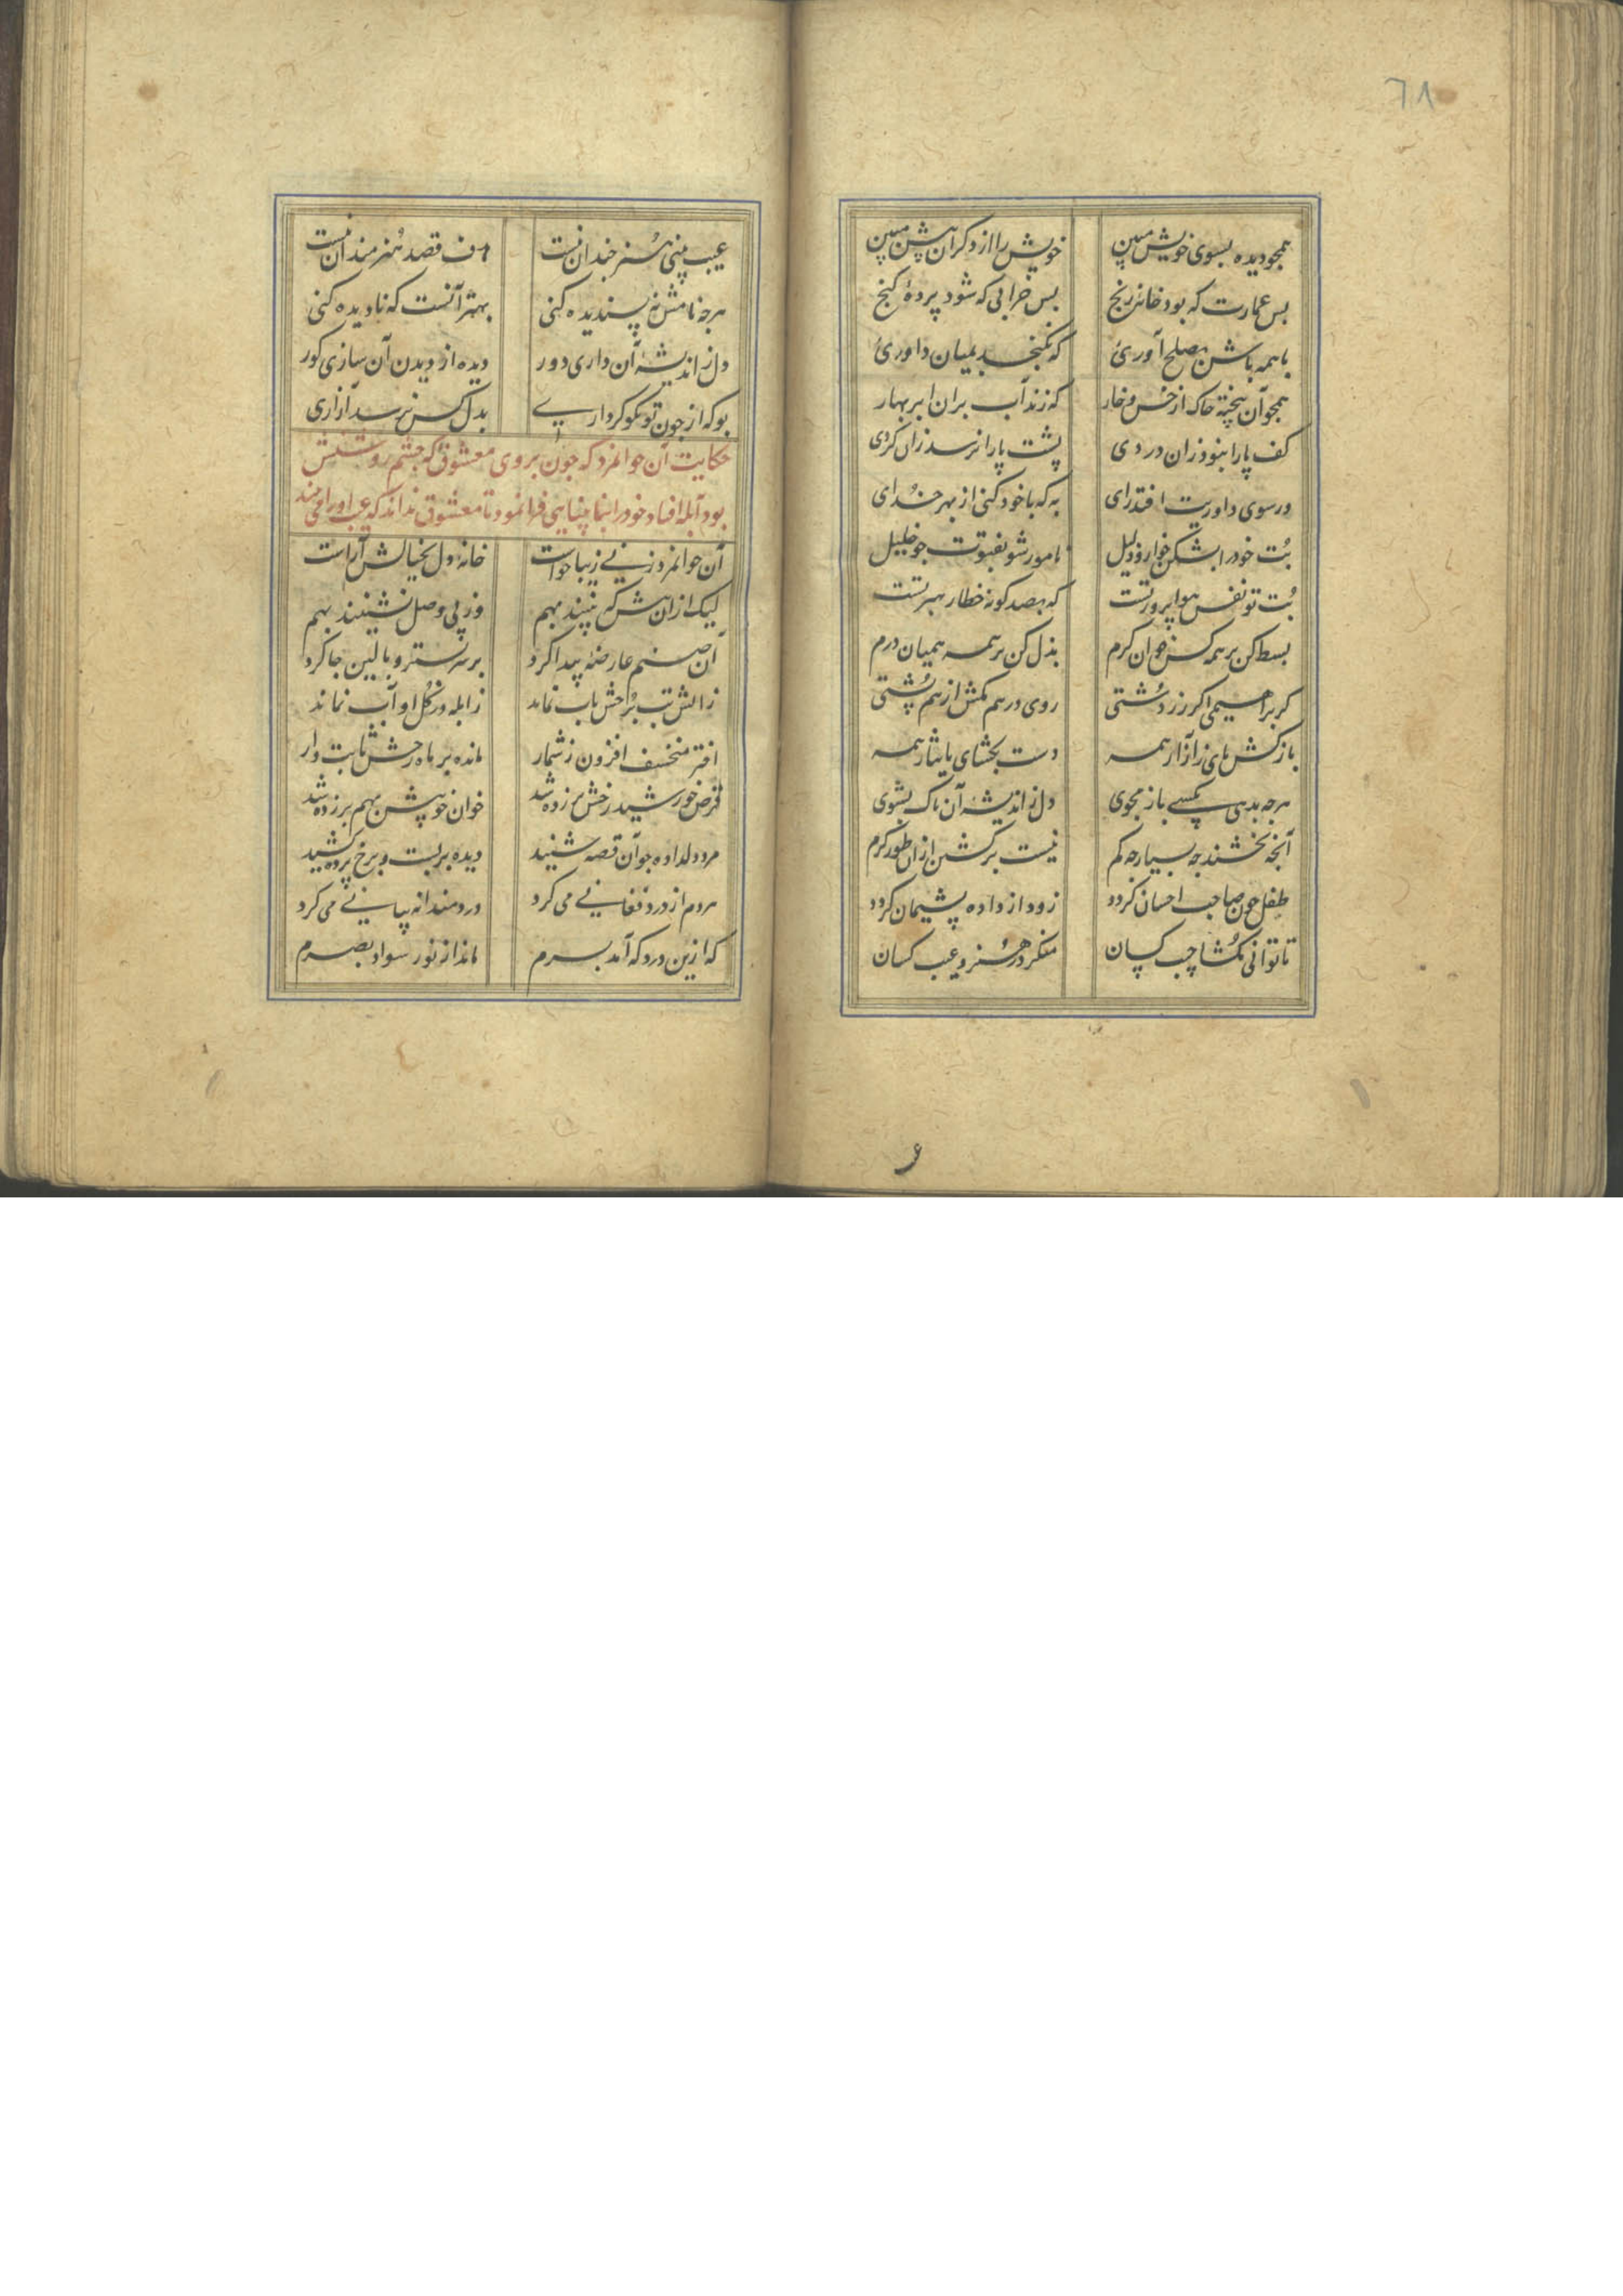 ٦٨
همچو دیده بسوی خویش مبین خویش را از دکران پیش مبین
بس عمارت که بود خانه رنج بس خرابی که شود پردهٔ کنج
باهمه باش بصلح آوری که نکنجد بمیان داوری
همچو آن پخته خاکه از خس و خار که زند آب بران ابر بهار
کف پا را نبود زان دردی پشت پا را نرسد زان کردی
ور سوی داوریت افتد رای به که با خود کنی از بهر خدای
بت خود را بشکن خوار و ذلیل نامور شو بفتوت جو خلیل
بت تو نفس هوا پرور تست که بصد کونه خطا رهبر تست
بسط کن بر همه کس خوان کرم بذل کن بر همه همیان درم
کر براهیمی اکر زردشتی روی در هم مکش از هم پشتی
باز کش پای ز آزار همه دست بخشای بایثار همه
هرجه بدهی بکسی باز مجوی دل ز اندیشه آن پاک بشوی
آنچه بخشند جه بسیار جه کم نیست برکشتن ازان طور کرم
طفل جون صاحب احسان کردد زود از داده پشیمان کردد
تا توانی مکشا جیب کسان منکر در هنر و عیب کسان
عیب بینی هنر جندان نیست هدف قصد هنرمندان نیست
هرجه نامش نه پسندیده کنی بهتر آنست که نادیده کنی
دل ز اندیشه آن داری دور دیده از دیدن آن سازی کور
بو که از جون تو نکو کرداری بدل کس نرسد آزاری
حکایت آن جوانمرد که جون بر روی معشوق که جشم روشنیش
بود آبله افتاد خود را بنابینایی فرا نمود تا معشوق نداند که عیب او را می بیند
آن جوانمرد زنی زیبا خواست خانه دل بخیالش آراست
لیک ازان پیش که بینند بهم وز پی وصل نشینند بهم
آن صنم عارضهٔ پیدا کرد بر سر بستر و بالین جا کرد
ز آتش تب برخش تاب نماند ز آبله در کل او آب نماند
اختر منخسف افزون ز شمار مانده بر ماه رخش ثابت وار
قرص خورشید رخش برزده شد خوان خوبیش بهم برزده شد
مرد دلداده جو آن قصه شنید دیده بر بست و برخ پرده کشید
مردم از درد فغانی می کرد دردمندانه بیانی می کرد
که ازین درد که آمد بسرم ماند از نور سواد بصرم